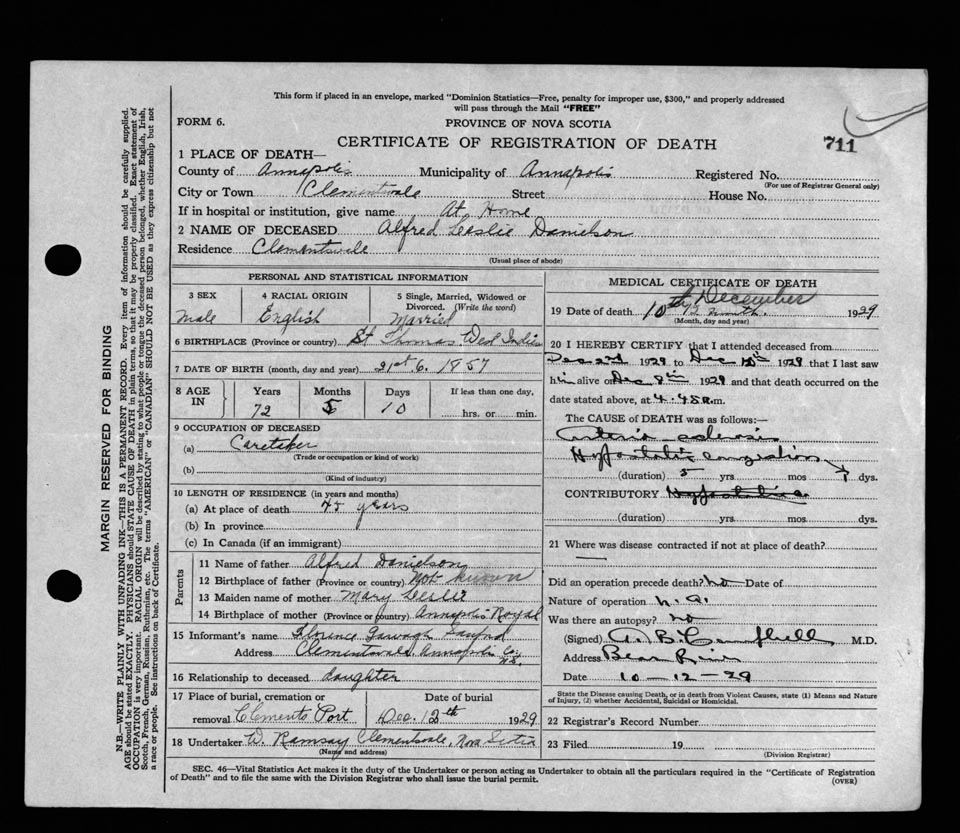 This form if placed in an envelope, marked "Dominion Statistics—Free, penalty for improper use, $300," and properly addressed
will pass through the Mail "FREE"
FORM 6.
PROVINCE OF NOVA SCOTIA
CERTIFICATE OF REGISTRATION OF DEATH
711
1 PLACE OF DEATH—
County of Annapolis Municipality of Annapolis Registered No.
(For use of Registrar General only)
City or Town Clementsvale Street House No.
If in hospital or institution, give name At Home
2 NAME OF DECEASED Alfred Leslie Danielson
Residence Clementsvale
(Usual place of abode)
PERSONAL AND STATISTICAL INFORMATION
3 SEX 4 RACIAL ORIGIN 5 Single, Married, Widowed or
Divorced. (Write the word)
Male English Married
6 BIRTHPLACE (Province or country) St Thomas West Indies
7 DATE OF BIRTH (month, day and year) 21st 6. 1857
8 AGE IN Years Months Days If less than one day,
72 5 10 hrs. or min.
9 OCCUPATION OF DECEASED
(a) Caretaker
(Trade or occupation or kind of work)
(b)
(Kind of industry)
10 LENGTH OF RESIDENCE (in years and months)
(a) At place of death 45 years
(b) In province
(c) In Canada (if an immigrant)
Parents
11 Name of father Alfred Danielson
12 Birthplace of father (Province or country) Not known
13 Maiden name of mother Mary Leslie
14 Birthplace of mother (Province or country) Annapolis Royal
15 Informant's name Florence
Address Clementsvale Annapolis Co. N.S.
16 Relationship to deceased daughter
17 Place of burial, cremation or Date of burial
removal Clements Port Dec. 12th 1929
18 Undertaker W. Ramsay Clementsvale, Nova Scotia
(Name and address)
MEDICAL CERTIFICATE OF DEATH
19 Date of death 10th December 12 month. 1929
(Month, day and year)
20 I HEREBY CERTIFY that I attended deceased from
Dec 2nd 1929 to Dec 10th 1929 that I last saw
him alive on Dec 8th 1929 and that death occurred on
the date stated above, at 4.45 a.m.
The CAUSE of DEATH was as follows:—
Arterio sclerosis
Hypostatic congestion
(duration) 5 yrs. mos. 7 dys.
CONTRIBUTORY
(duration) yrs. mos. dys.
21 Where was disease contracted if not at place of death?
Did an operation precede death? No Date of
Nature of operation N.A.
Was there an autopsy? No
(Signed) A. B. Campbell M.D.
Address Bear River
Date 10-12-29
State the Disease causing Death, or in death from Violent Causes, state (1) Means and Nature
of Injury, (2) whether Accidental, Suicidal or Homicidal.
22 Registrar's Record Number
23 Filed 19
(Division Registrar)
SEC. 46—Vital Statistics Act makes it the duty of the Undertaker or person acting as Undertaker to obtain all the particulars required in the "Certificate of Registration
of Death" and to file the same with the Division Registrar who shall issue the burial permit.
(OVER)
MARGIN RESERVED FOR BINDING
N.B.—WRITE PLAINLY WITH UNFADING INK—THIS IS A PERMANENT RECORD. Every item of information should be carefully supplied.
AGE should be stated EXACTLY. PHYSICIANS should STATE CAUSE OF DEATH in plain terms, so that it may be properly classified. Exact statement of
OCCUPATION is very important. RACIAL ORIGIN will be described by stating to what people or tongue the deceased person belonged, whether English, Irish,
Scotch, French, German, Russian, Ruthenian, etc. The terms "AMERICAN" or "CANADIAN" SHOULD NOT BE USED as they express citizenship but not
a race or people. See instructions on back of Certificate.